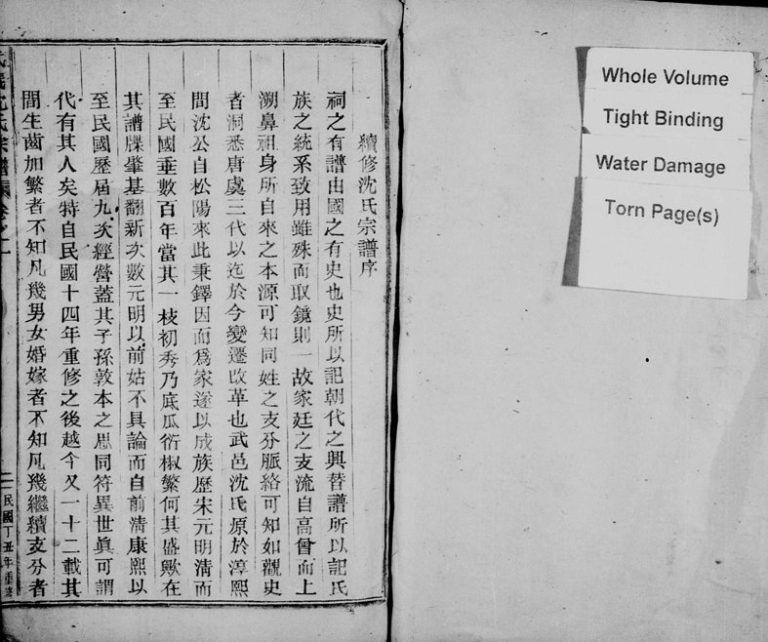 續修沈氏宗譜序
祠之有譜由國之有史也史所以記朝代之興替譜所以記氏
族之統系致用雖殊而取鏡則一故家廷之支流自高曾而上
溯鼻祖身所自來之本源可知同姓之支分脈絡可知如觀史
者洞悉唐虞三代以迄於今變遷改革也武邑沈氏原於淳熙
間沈公自松陽來此秉鐸因而爲家遂以成族歷宋元明清而
至民國垂數百年當其一枝初秀乃底瓜衍椒繁何其盛歟在
其譜牒肇基翻新次數元明以前姑不具論而自前清康熙以
至民國歷屆九次經營蓋其子孫敦本之思同符異世眞可謂
代有其人矣特自民國十四年重修之後越今又一十二載其
間生齒加繁者不知凡幾男女婚嫁者不知凡幾繼續支分者
沈氏宗譜
卷之一
民國丁丑年重
Whole Volume
Tight Binding
Water Damage
Torn Page(s)